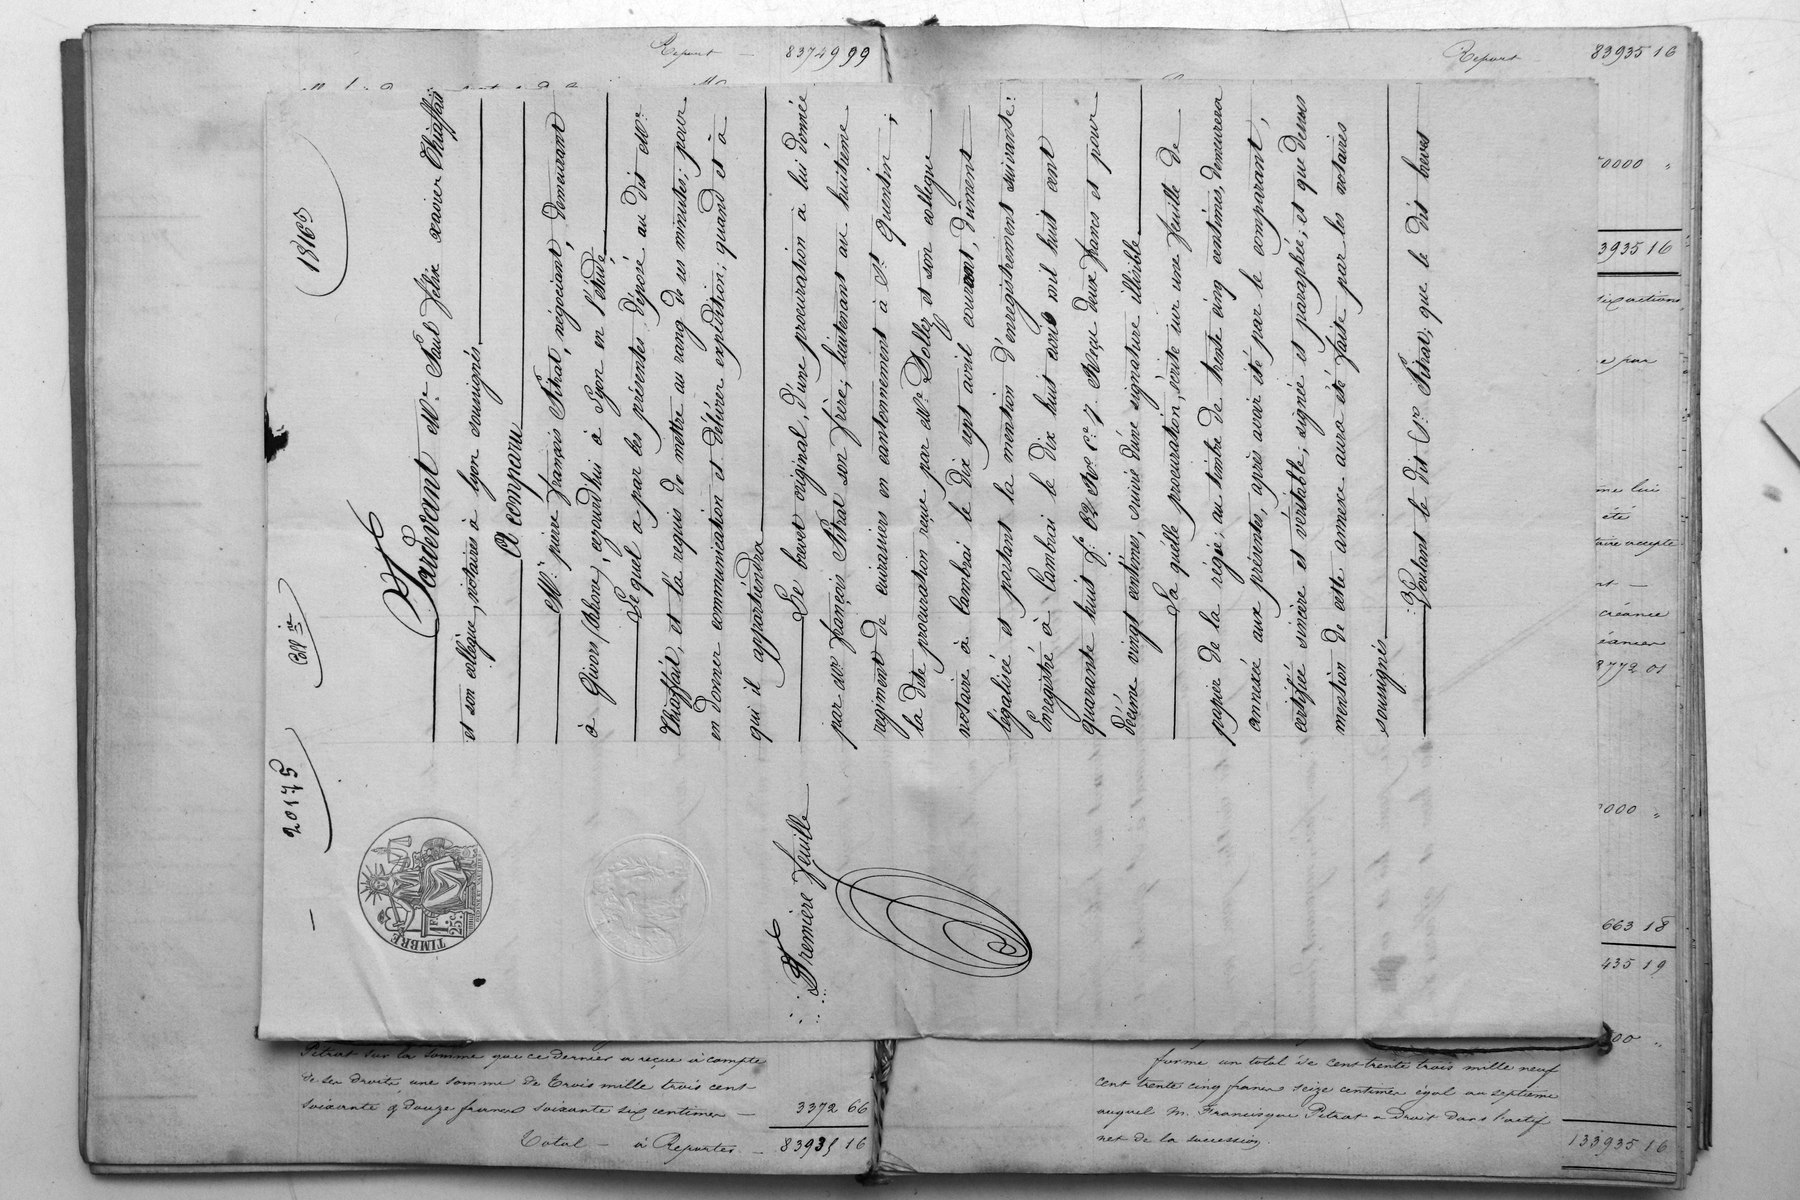 Report — 83749 99
Report 83935 16
20175
Coll née
18165
Pardevant Mr. Paul félix xavier Thiaffait
et son collègue, notaires à lyon soussignés.
A comparu
Mr. pierre françois Pitrat, négociant, demeurant
à Givors (rhone), cejourd'hui à Lyon en l'étude.
Le quel a par les présentes déposé au dit Mr.
Thiaffait, et l'a requis de mettre au rang de ses minutes; pour
en donner communication et délivrer expédition; quand et à
qui il appartiendra.
Le brevet original, d'une procuration à lui donnée
par Mr. françois Pitrat son frère, lieutenant au huitième
régiment de cuirassiers en cantonnement à St. Quentin;
la dite procuration reçue par Mr. Dollez et son collègue
notaire à Cambrai le dix sept avril courant, dûment
légalisée et portant la mention d'enregistrement suivante:
Enregistré à Cambrai le dix huit avril mil huit cent
quarante huit f. 62 Ro. C. 7. Reçu deux francs et pour
décime vingt centimes, suivi d'une signature illisible.
La quelle procuration, écrite sur une feuille de
papier de la régie; au timbre de trente cinq centimes, demeurera
annexée aux présentes, après avoir été par le comparant,
certifiée sincère et véritable, signée et paraphée; et que dessus
mention de cette annexe aura été faite par les notaires
soussignés.
Voulant le dit Sr. Pitrat; que le dit brevet
TIMBRE
1 F.
25c.
Première feuille
0000 "
3935 16
six actions
e par
me lui
été
taire accepté
créance
créancier
3772 01
000 "
663 18
435 19
00 "
Pitrat sur la somme que ce dernier a reçue à compte
de ses droits une somme de trois mille trois cent
soixante & douze francs soixante six centimes — 3372 66
Total — à Reporter — 83935 16
forme un total de cent trente trois mille neuf
cent trente cinq francs seize centimes égal au septième
auquel M. Francisque Pitrat a droit dans l'actif
net de la succession. 133935 16